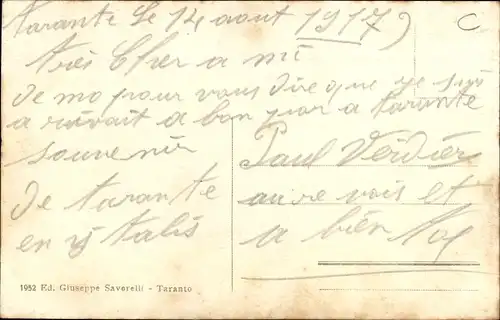 tarante Le 12 aout 1917
C
très Cher a mi
De mo pour vous dire que je suis
a rivait a bon por a tarante
souvenir
de tarante
en italis
Paul Verdier
au re vois et
a bien
1952 Ed. Giuseppe Saverelli - Taranto